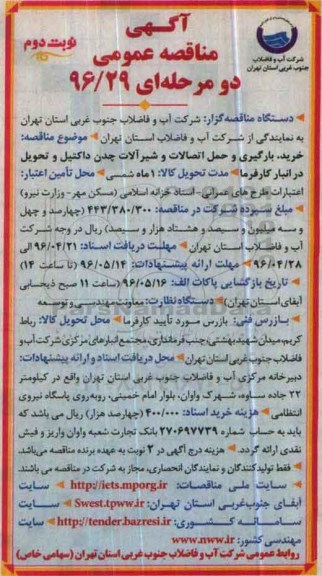 آگهی
مناقصه عمومی
دو مرحله‌ای ۹۶/۲۹
نوبت دوم
شرکت آب و فاضلاب
جنوب غربی استان تهران
دستگاه مناقصه‌گزار: شرکت آب و فاضلاب جنوب غربی استان تهران
به نمایندگی از شرکت آب و فاضلاب استان تهران موضوع مناقصه:
خرید، بارگیری و حمل اتصالات و شیرآلات چدن داکتیل و تحویل
در انبار کارفرما مدت تحویل کالا: ۱ ماه شمسی محل تأمین اعتبار:
اعتبارات طرح های عمرانی - اسناد خزانه اسلامی (مسکن مهر - وزارت نیرو)
مبلغ سپرده شرکت در مناقصه: ۴۴۳/۳۸۰/۳۰۰ (چهارصد و چهل
و سه میلیون و سیصد و هشتاد هزار و سیصد) ریال در وجه شرکت
آب و فاضلاب استان تهران مهلت دریافت اسناد: ۹۶/۰۴/۲۱ الی
۹۶/۰۴/۲۸ مهلت ارائه پیشنهادات: ۹۶/۰۵/۱۴ (تا ساعت ۱۴)
تاریخ بازگشایی پاکات الف: ۹۶/۰۵/۱۶ (ساعت ۱۱ صبح ذیحسابی
آبفای استان تهران) دستگاه نظارت: معاونت مهندسی و توسعه
بازرس فنی: بازرس مورد تأیید کارفرما محل تحویل کالا: رباط
کریم، میدان شهید بهشتی، جنب فرمانداری، مجتمع انبارهای مرکزی شرکت آب و
فاضلاب جنوب غربی استان تهران محل دریافت اسناد و ارائه پیشنهادات:
دبیرخانه مرکزی آب و فاضلاب جنوب غربی استان تهران واقع در کیلومتر
۲۲ جاده ساوه، شهرک واوان، بلوار امام خمینی، روبه روی پاسگاه نیروی
انتظامی هزینه خرید اسناد: ۴۰۰/۰۰۰ (چهارصد هزار) ریال می باشد که
باید به حساب شماره ۲۷۰۶۹۷۷۳۹ بانک تجارت شعبه واوان واریز و فیش
نقدی ارائه گردد. هزینه درج آگهی در ۲ نوبت به عهده برنده مناقصه می‌باشد.
فقط تولیدکنندگان و نمایندگان انحصاری، مجاز به شرکت در مناقصه می باشند.
سایت ملی مناقصات: http://iets.mporg.ir سایت
آبفای جنوب‌غربی استان تهران: Swest.tpww.ir سایت
سامانه کشوری: http://tender.bazresi.ir سایت
مهندسی کشور: www.nww.ir
روابط عمومی شرکت آب و فاضلاب جنوب غربی استان تهران (سهامی خاص)